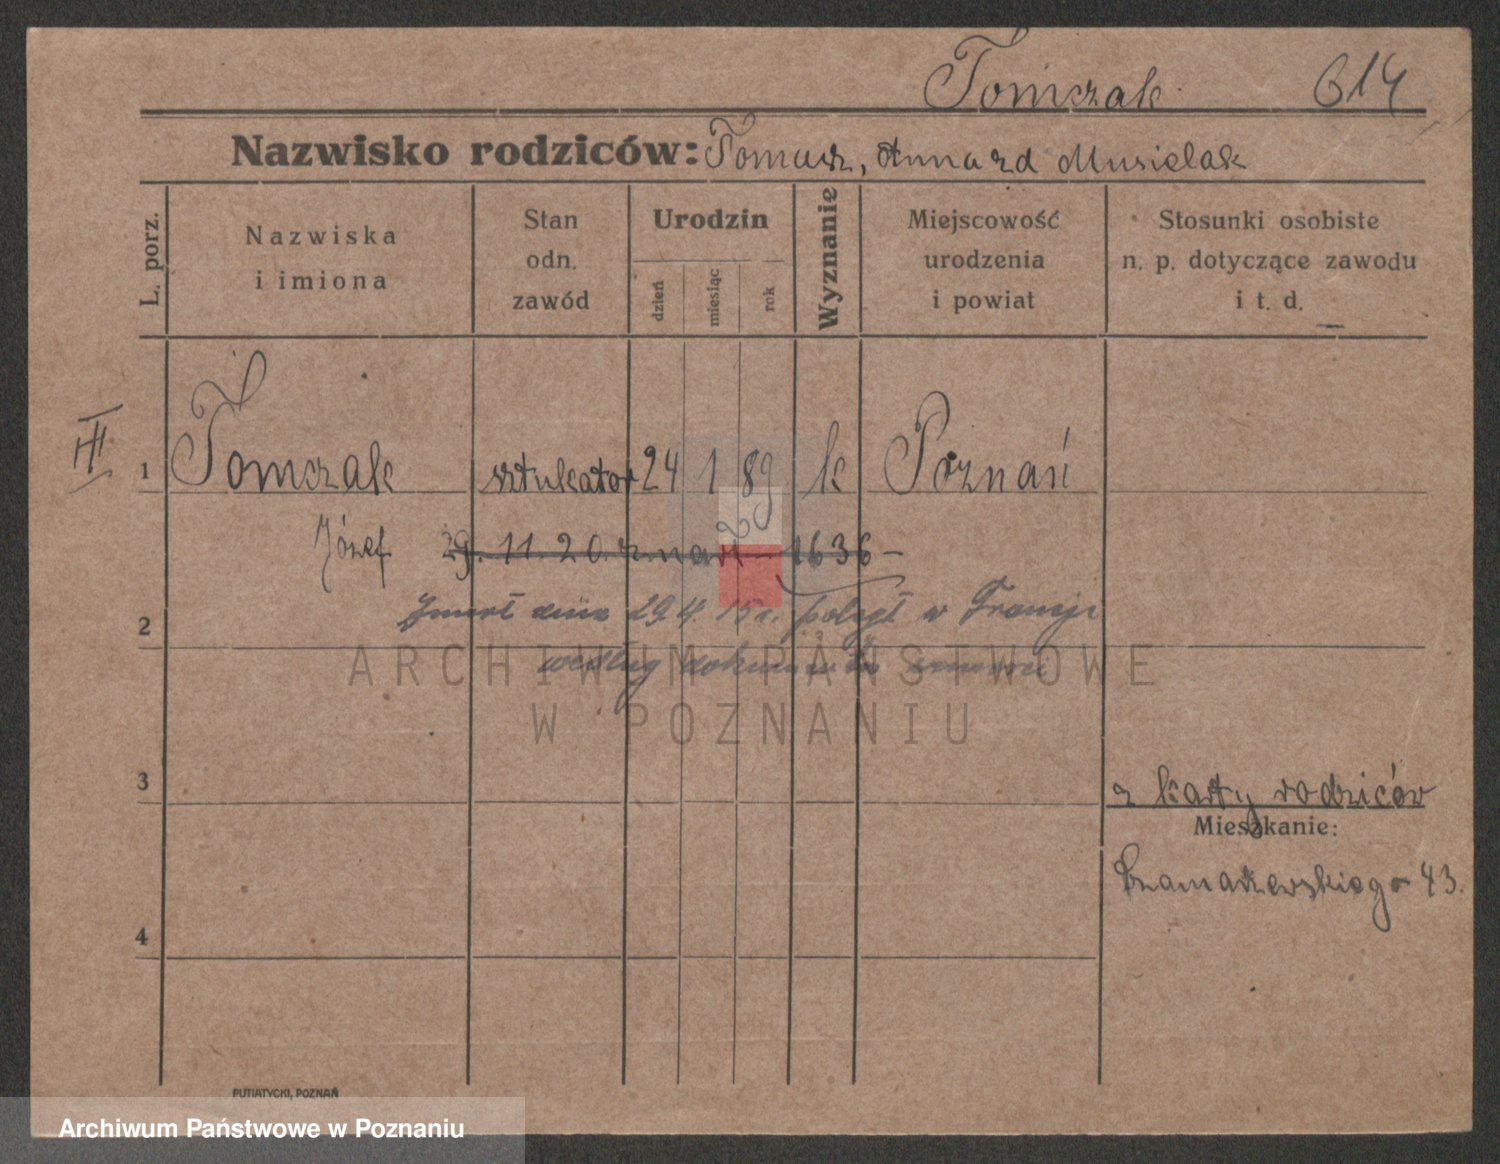 Tomczak 614
Nazwisko rodziców: Tomasz, Anna zd Musielak
L. porz.
Nazwiska
i imiona
Stan
odn.
zawód
Urodzin
dzień
miesiąc
rok
Wyznanie
Miejscowość
urodzenia
i powiat
Stosunki osobiste
n. p. dotyczące zawodu
i t. d.
III
1 Tomczak sztukator 24 1 89 k Poznań
Józef 29. 11. 20. zmarł 1636
Zmarł dnia 29.4. 15 r. poległ w Francji
2
według
ARCHIWUM PAŃSTWOWE
W POZNANIU
3
z karty rodziców
Mieszkanie:
Szamarzewskiego 43.
4
PUTIATYCKI, POZNAŃ
Archiwum Państwowe w Poznaniu